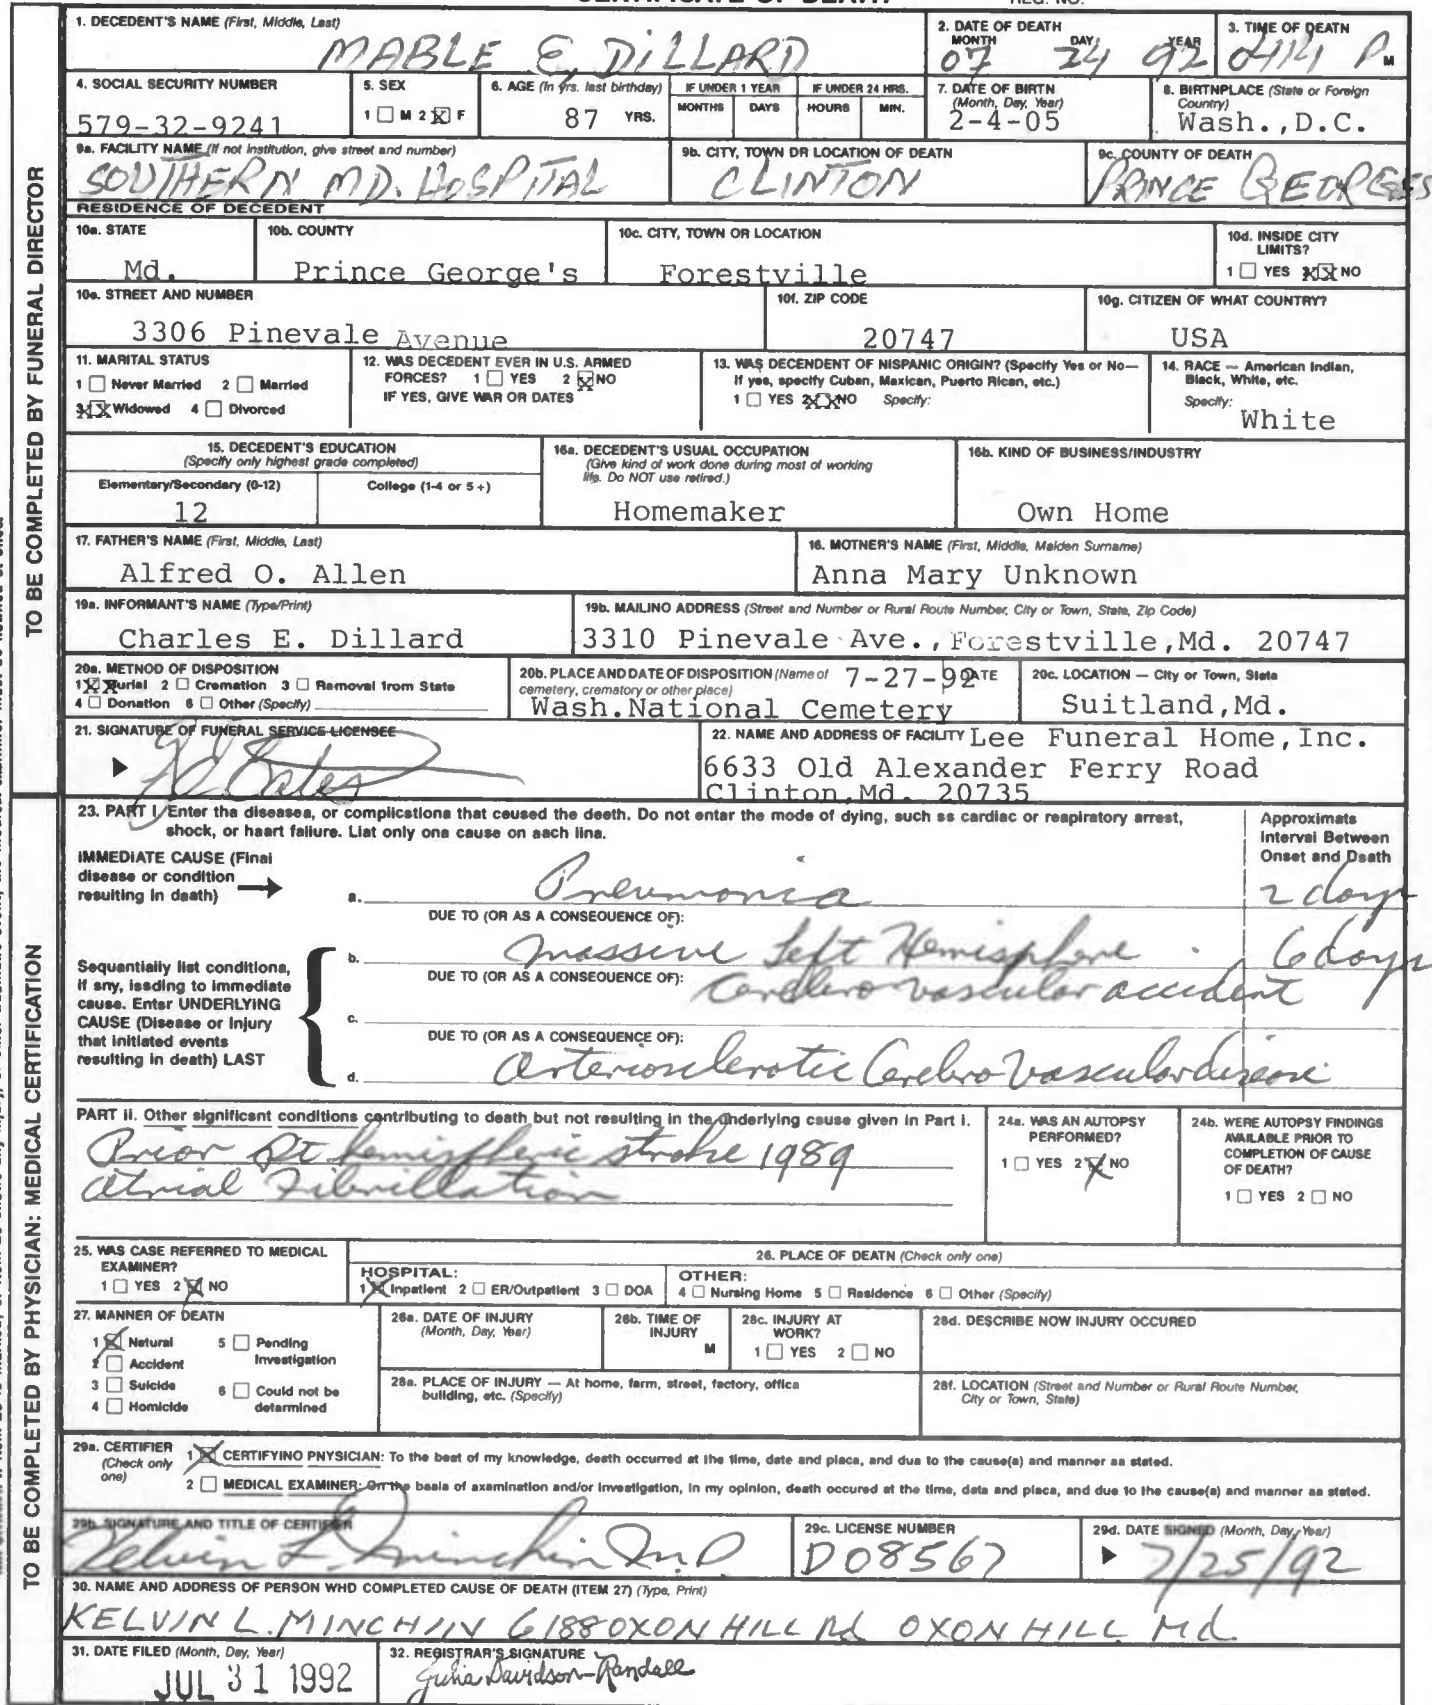 CERTIFICATE OF DEATH REG. NO.
1. DECEDENT'S NAME (First, Middle, Last)
MABLE E, DILLARD
2. DATE OF DEATH
MONTH DAY YEAR
07 24 92
3. TIME OF DEATH
0414 P M
4. SOCIAL SECURITY NUMBER
579-32-9241
5. SEX
1 M 2 X F
6. AGE (In yrs. last birthday)
87 YRS.
IF UNDER 1 YEAR
MONTHS DAYS
IF UNDER 24 HRS.
HOURS MIN.
7. DATE OF BIRTH
(Month, Day, Year)
2-4-05
8. BIRTHPLACE (State or Foreign
Country)
Wash.,D.C.
9a. FACILITY NAME (If not institution, give street and number)
SOUTHERN MD. HOSPITAL
9b. CITY, TOWN OR LOCATION OF DEATH
CLINTON
9c. COUNTY OF DEATH
PRINCE GEORGES
RESIDENCE OF DECEDENT
10a. STATE
Md.
10b. COUNTY
Prince George's
10c. CITY, TOWN OR LOCATION
Forestville
10d. INSIDE CITY
LIMITS?
1 YES 2 X NO
10e. STREET AND NUMBER
3306 Pinevale Avenue
10f. ZIP CODE
20747
10g. CITIZEN OF WHAT COUNTRY?
USA
11. MARITAL STATUS
1 Never Married 2 Married
3 X Widowed 4 Divorced
12. WAS DECEDENT EVER IN U.S. ARMED
FORCES? 1 YES 2 X NO
IF YES, GIVE WAR OR DATES
13. WAS DECENDENT OF HISPANIC ORIGIN? (Specify Yes or No—
If yes, specify Cuban, Maxican, Puerto Rican, etc.)
1 YES 2 X NO Specify:
14. RACE — American Indian,
Black, White, etc.
Specify:
White
15. DECEDENT'S EDUCATION
(Specify only highest grade completed)
Elementary/Secondary (0-12) College (1-4 or 5+)
12
16a. DECEDENT'S USUAL OCCUPATION
(Give kind of work done during most of working
life. Do NOT use retired.)
Homemaker
16b. KIND OF BUSINESS/INDUSTRY
Own Home
17. FATHER'S NAME (First, Middle, Last)
Alfred O. Allen
18. MOTHER'S NAME (First, Middle, Maiden Surname)
Anna Mary Unknown
19a. INFORMANT'S NAME (Type/Print)
Charles E. Dillard
19b. MAILING ADDRESS (Street and Number or Rural Route Number, City or Town, State, Zip Code)
3310 Pinevale Ave.,Forestville,Md. 20747
20a. METHOD OF DISPOSITION
1 X Burial 2 Cremation 3 Removal from State
4 Donation 6 Other (Specify)
20b. PLACE AND DATE OF DISPOSITION (Name of 7-27-92 DATE
cemetery, crematory or other place)
Wash.National Cemetery
20c. LOCATION — City or Town, State
Suitland,Md.
21. SIGNATURE OF FUNERAL SERVICE LICENSEE
22. NAME AND ADDRESS OF FACILITY Lee Funeral Home,Inc.
6633 Old Alexander Ferry Road
Clinton,Md. 20735
TO BE COMPLETED BY FUNERAL DIRECTOR
23. PART I Enter the diseases, or complications that caused the death. Do not enter the mode of dying, such as cardiac or respiratory arrest,
shock, or heart failure. List only one cause on each line.
Approximate
Interval Between
Onset and Death
IMMEDIATE CAUSE (Final
disease or condition
resulting in death)
a. Pneumonia 2 days
DUE TO (OR AS A CONSEQUENCE OF):
b. massive Left Hemisphere 6 days
DUE TO (OR AS A CONSEQUENCE OF):
Cerebro vascular accident
c.
DUE TO (OR AS A CONSEQUENCE OF):
d. Arteriosclerotic Cerebro Vascular disease
Sequentially list conditions,
if any, leading to immediate
cause. Enter UNDERLYING
CAUSE (Disease or Injury
that initiated events
resulting in death) LAST
PART II. Other significant conditions contributing to death but not resulting in the underlying cause given in Part I.
Prior Rt hemispheric stroke 1989
Atrial Fibrillation
24a. WAS AN AUTOPSY
PERFORMED?
1 YES 2 X NO
24b. WERE AUTOPSY FINDINGS
AVAILABLE PRIOR TO
COMPLETION OF CAUSE
OF DEATH?
1 YES 2 NO
25. WAS CASE REFERRED TO MEDICAL
EXAMINER?
1 YES 2 X NO
26. PLACE OF DEATH (Check only one)
HOSPITAL:
1 X Inpatient 2 ER/Outpatient 3 DOA
OTHER:
4 Nursing Home 5 Residence 6 Other (Specify)
27. MANNER OF DEATH
1 X Natural 5 Pending
2 Accident Investigation
3 Suicide 6 Could not be
4 Homicide determined
28a. DATE OF INJURY
(Month, Day, Year)
28b. TIME OF
INJURY
M
28c. INJURY AT
WORK?
1 YES 2 NO
28d. DESCRIBE HOW INJURY OCCURED
28e. PLACE OF INJURY — At home, farm, street, factory, office
building, etc. (Specify)
28f. LOCATION (Street and Number or Rural Route Number,
City or Town, State)
29a. CERTIFIER
(Check only
one)
1 X CERTIFYING PHYSICIAN: To the best of my knowledge, death occurred at the time, date and place, and due to the cause(s) and manner as stated.
2 MEDICAL EXAMINER: On the basis of examination and/or investigation, in my opinion, death occured at the time, date and place, and due to the cause(s) and manner as stated.
29b. SIGNATURE AND TITLE OF CERTIFIER
Kelvin L Minchin M.D
29c. LICENSE NUMBER
D08567
29d. DATE SIGNED (Month, Day, Year)
7/25/92
30. NAME AND ADDRESS OF PERSON WHO COMPLETED CAUSE OF DEATH (ITEM 27) (Type, Print)
KELVIN L. MINCHIN 6188 OXON HILL Rd OXON HILL Md.
31. DATE FILED (Month, Day, Year)
JUL 31 1992
32. REGISTRAR'S SIGNATURE
Julia Davidson-Randall
TO BE COMPLETED BY PHYSICIAN: MEDICAL CERTIFICATION